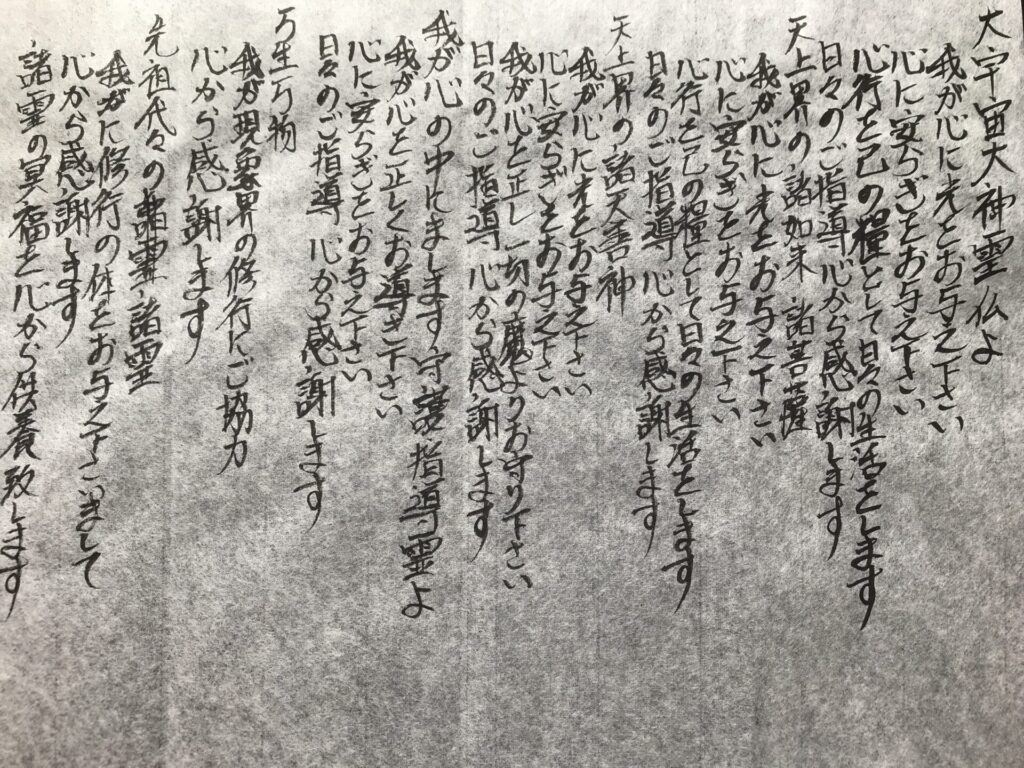 大宇宙大神霊仏よ
我が心に光をお与え下さい
心に安らぎをお与え下さい
心行を己の糧として日々の生活をします
日々のご指導心から感謝します
天上界の諸如来諸菩薩
我が心に光をお与え下さい
心に安らぎをお与え下さい
心行を己の糧として日々の生活をします
日々のご指導心から感謝します
天上界の諸天善神
我が心に光をお与え下さい
心に安らぎをお与え下さい
我が心を正し一切の魔よりお守り下さい
日々のご指導心から感謝します
我が心の中にまします守護指導霊よ
我が心を正しくお導き下さい
心に安らぎをお与え下さい
日々のご指導心から感謝します
万生万物
我が現象界の修行にご協力
心から感謝します
先祖代々の諸霊諸霊
我がに修行の体をお与え下さいまして
心から感謝します
諸霊の冥福を心から供養致します